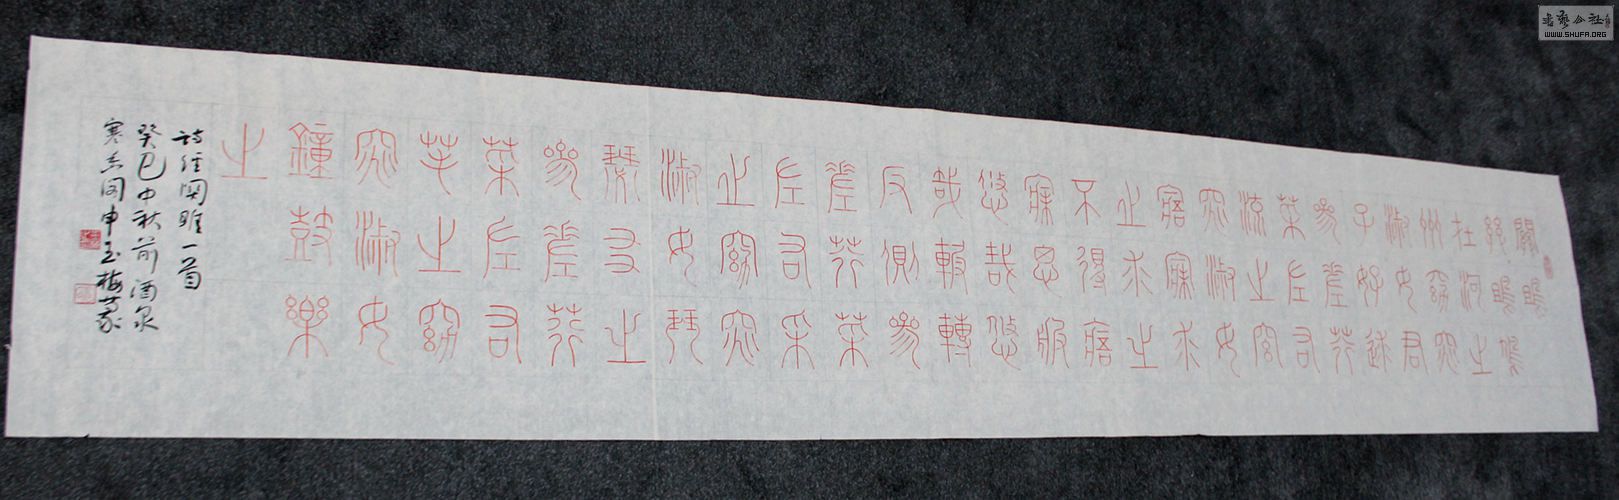 關
鴡鳩
在河之
州窈窕
淑女君
子好逑
參差荇
菜左右
流之窈
窕淑女
寤寐求
之求之
不得寤
寐思服
悠哉悠
哉輾轉
反側參
差荇菜
左右采
之窈窕
淑女琴
瑟友之
參差荇
菜左右
芼之窈
窕淑女
鐘鼓樂
之
詩經関雎一首
癸巳中秋前酒泉
寒香阁申玉梅篆
書藝公社
WWW.SHUFA.ORG